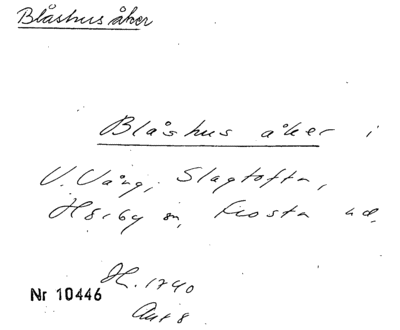 Blåshus åker
Blåshus åker i
V. Vång, Slagtofta,
Hörby sn, Frosta hd.
Nr 10446
H. 1740
Akt 8